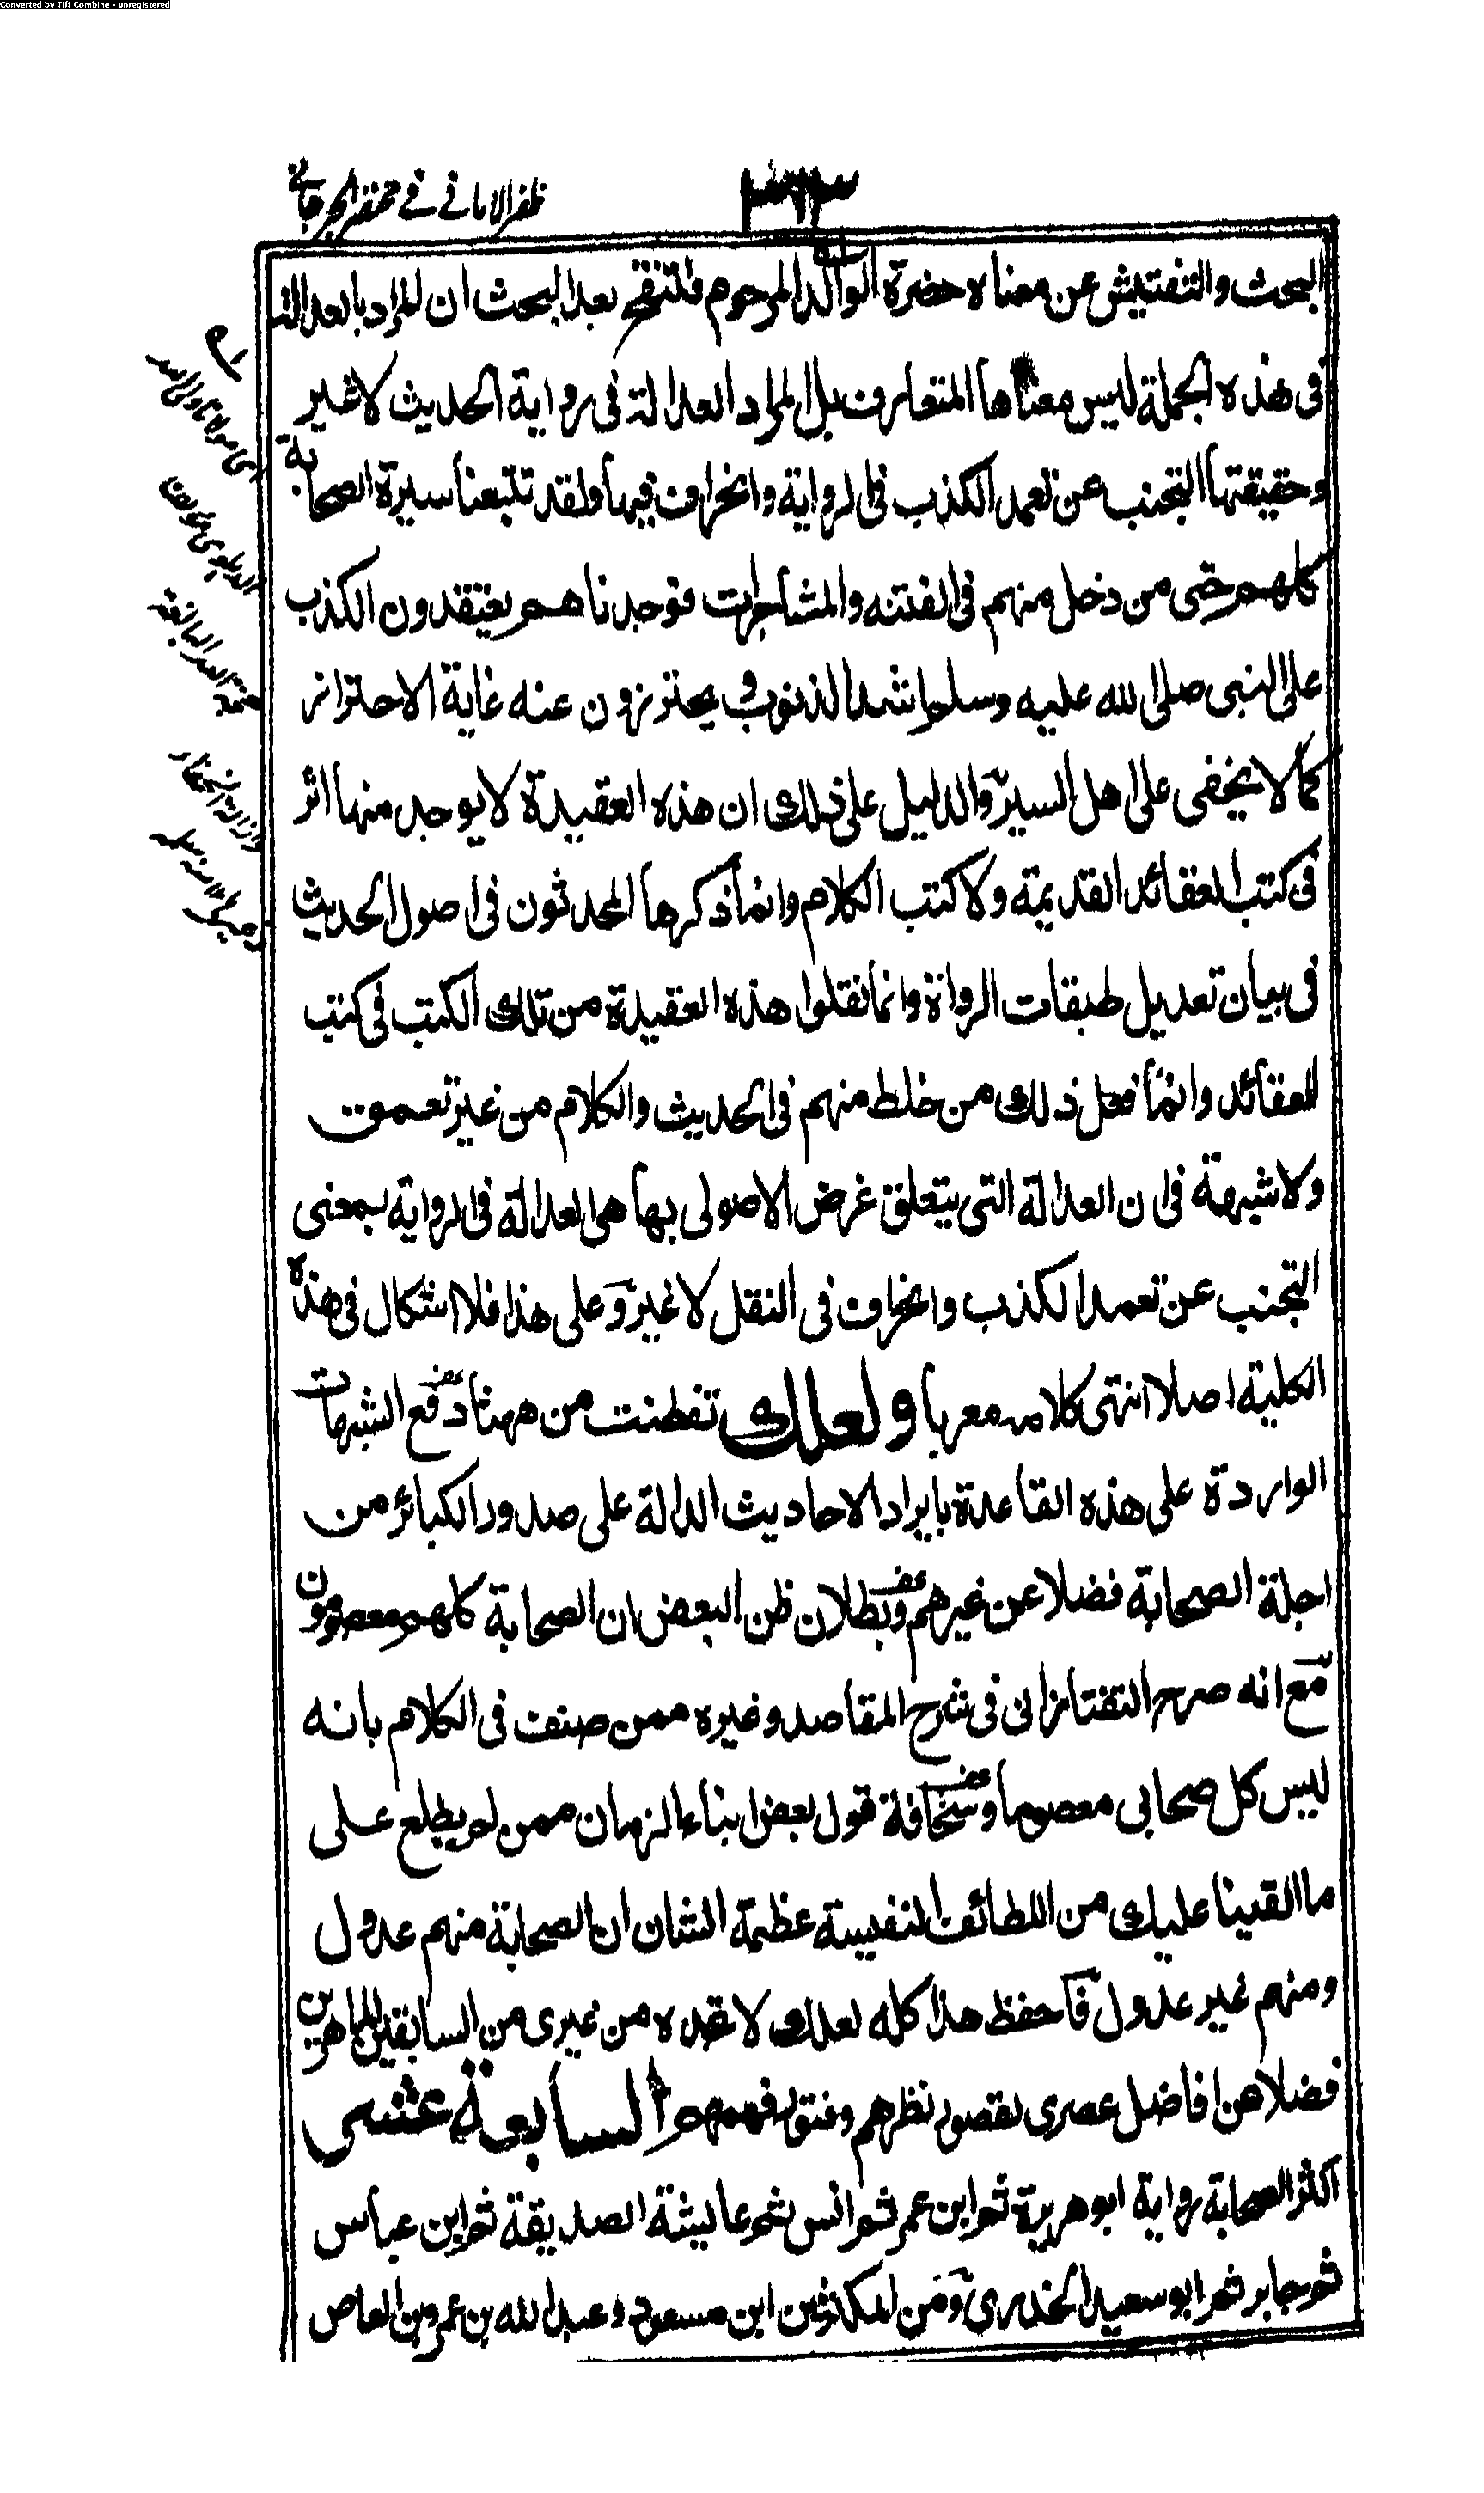 Converted by Tiff Combine - unregistered
ظفر الاماني في مختصر الجرجاني
البحث والتفتيش عن معناه حضرة الوالد المرحوم فتنقح بعد البحث ان المراد بالعدالة
فى هذه الجملة ليس معناها المتعارف بل المراد العدالة فى رواية الحديث لا غير
وحقيقتها التجنب عن تعمد الكذب فى الرواية وانحراف فيها ولقد تتبعنا سيرة الصحابة
كلهم حتى من دخل منهم فى الفتنه والمشاجرات فوجدناهم يعتقدون الكذب
على النبى صلى الله عليه وسلم اشد الذنوب ويحترزون عنه غاية الاحتراز
كما لا يخفى على اهل السير والدليل على ذلك ان هذه العقيدة لا يوجد منها اثر
فى كتب العقائد القديمة ولا كتب الكلام وانما ذكرها المحدثون فى اصول الحديث
فى بيان تعديل طبقات الرواة وانما نقلوا هذه العقيدة من تلك الكتب فى كتب
العقائد وانما فعل ذلك من خلط منهم فى الحديث والكلام من غير تعمق
ولا شبهة فى ان العدالة التى يتعلق غرض الاصولى بها هى العدالة فى الرواية بمعنى
التجنب عن تعمد الكذب وانحراف فى النقل لا غير وعلى هذا فلا اشكال فى هذه
الكلية اصلا انتهى كلامه معربا ولعلك تفطنت من ههنا دفع الشبهات
الواردة على هذه القاعدة بايراد الاحاديث الدالة على صدور الكبائر من
اجلة الصحابة فضلا عن غيرهم وبطلان ظن البعض ان الصحابة كلهم معصومون
مع انه صرح التفتازانى فى شرح المقاصد وغيره ممن صنف فى الكلام بانه
ليس كل صحابى معصوما وسخافة قول بعض ابناء الزمان ممن لم يطلع على
ما القينا عليك من اللطائف النفيسة عظيمة الشان ان الصحابة منهم عدول
ومنهم غير عدول فاحفظ هذا كله لعلك لا تجده من غيرى من السابقين الماهرين
فضلا عن افاضل عصرى لقصور نظرهم وفتق فهمهم السابعة عشى
اكثر الصحابة رواية ابو هريرة ثم ابن عمر ثم انس ثم عايشة الصديقة ثم ابن عباس
ثم جابر ثم ابو سعيد الخدرى ومن المكثرين ابن مسعود وعبد الله بن عمرو بن العاص